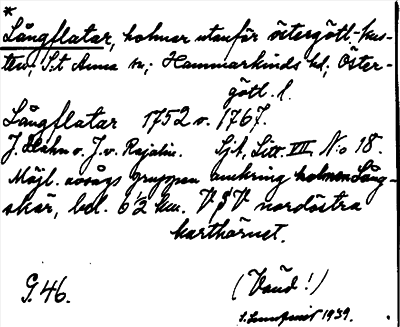 *
Långflatar, holmar utanför östergötl.-kus-
ten; S:t Anna sn; Hammarkinds hd, Öster-
götl. l.
Långflatar 1752 o. 1767.
J. Hahn o. J. v. Rajalin. Sjk, Litt. VII, N:o 18.
Möjl. avsågs gruppen omkring holmen Lång-
skär, bel. 6 1/2 km. V. § V. nordöstra
karthörnet.
G. 46. (Vänd!)
S. Lundqvist 1939.